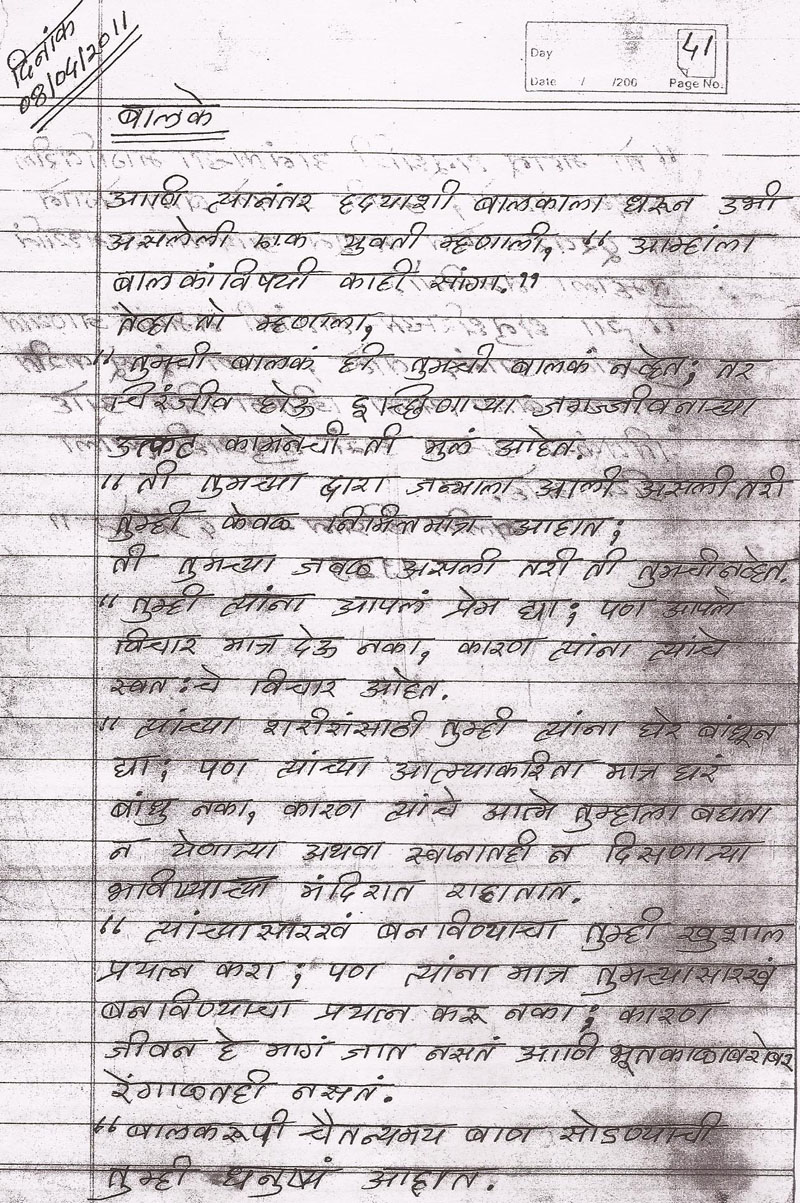 दिनांक
08/04/2011
Day
41
Date / /200 Page No.
बालके
आणि त्यानंतर हृदयाशी बालकाला धरून उभी
असलेली एक युवती म्हणाली, “ आम्हांला
बालकांविषयी काही सांगा.”
तेव्हा तो म्हणाला,
“ तुमची बालकं ही तुमची बालकं नव्हेत; तर
चिरंजीव होऊ इच्छिणाऱ्या जगज्जीवनाच्या
उत्कट कामनेची ती मुलं आहेत.
“ ती तुमच्या द्वारा जन्माला आली असली तरी
तुम्ही केवळ निमित्तमात्र आहात;
ती तुमच्या जवळ असली तरी ती तुमची नव्हेत.
“ तुम्ही त्यांना आपलं प्रेम द्या; पण आपले
विचार मात्र देऊ नका, कारण त्यांना त्यांचे
स्वतःचे विचार आहेत.
“ त्यांच्या शरीरांसाठी तुम्ही त्यांना घेर बांधून
द्या; पण त्यांच्या आत्म्याकरिता मात्र घरं
बांधु नका, कारण त्यांचे आत्मे तुम्हाला बघता
न येणाऱ्या अथवा स्वप्नातही न दिसणाऱ्या
भविष्याच्या मंदिरात राहातात.
“ त्यांच्यासारखं बनविण्याचा तुम्ही खुशाल
प्रयत्न करा; पण त्यांना मात्र तुमच्यासारखं
बनविण्याचा प्रयत्न करू नका; कारण
जीवन हे मागं जात नसतं आणि भूतकाळाबरोबर
रेंगाळतही नसतं.
“ बालकरूपी चैतन्यमय बाण सोडण्याची
तुम्ही धनुष्यं आहात.